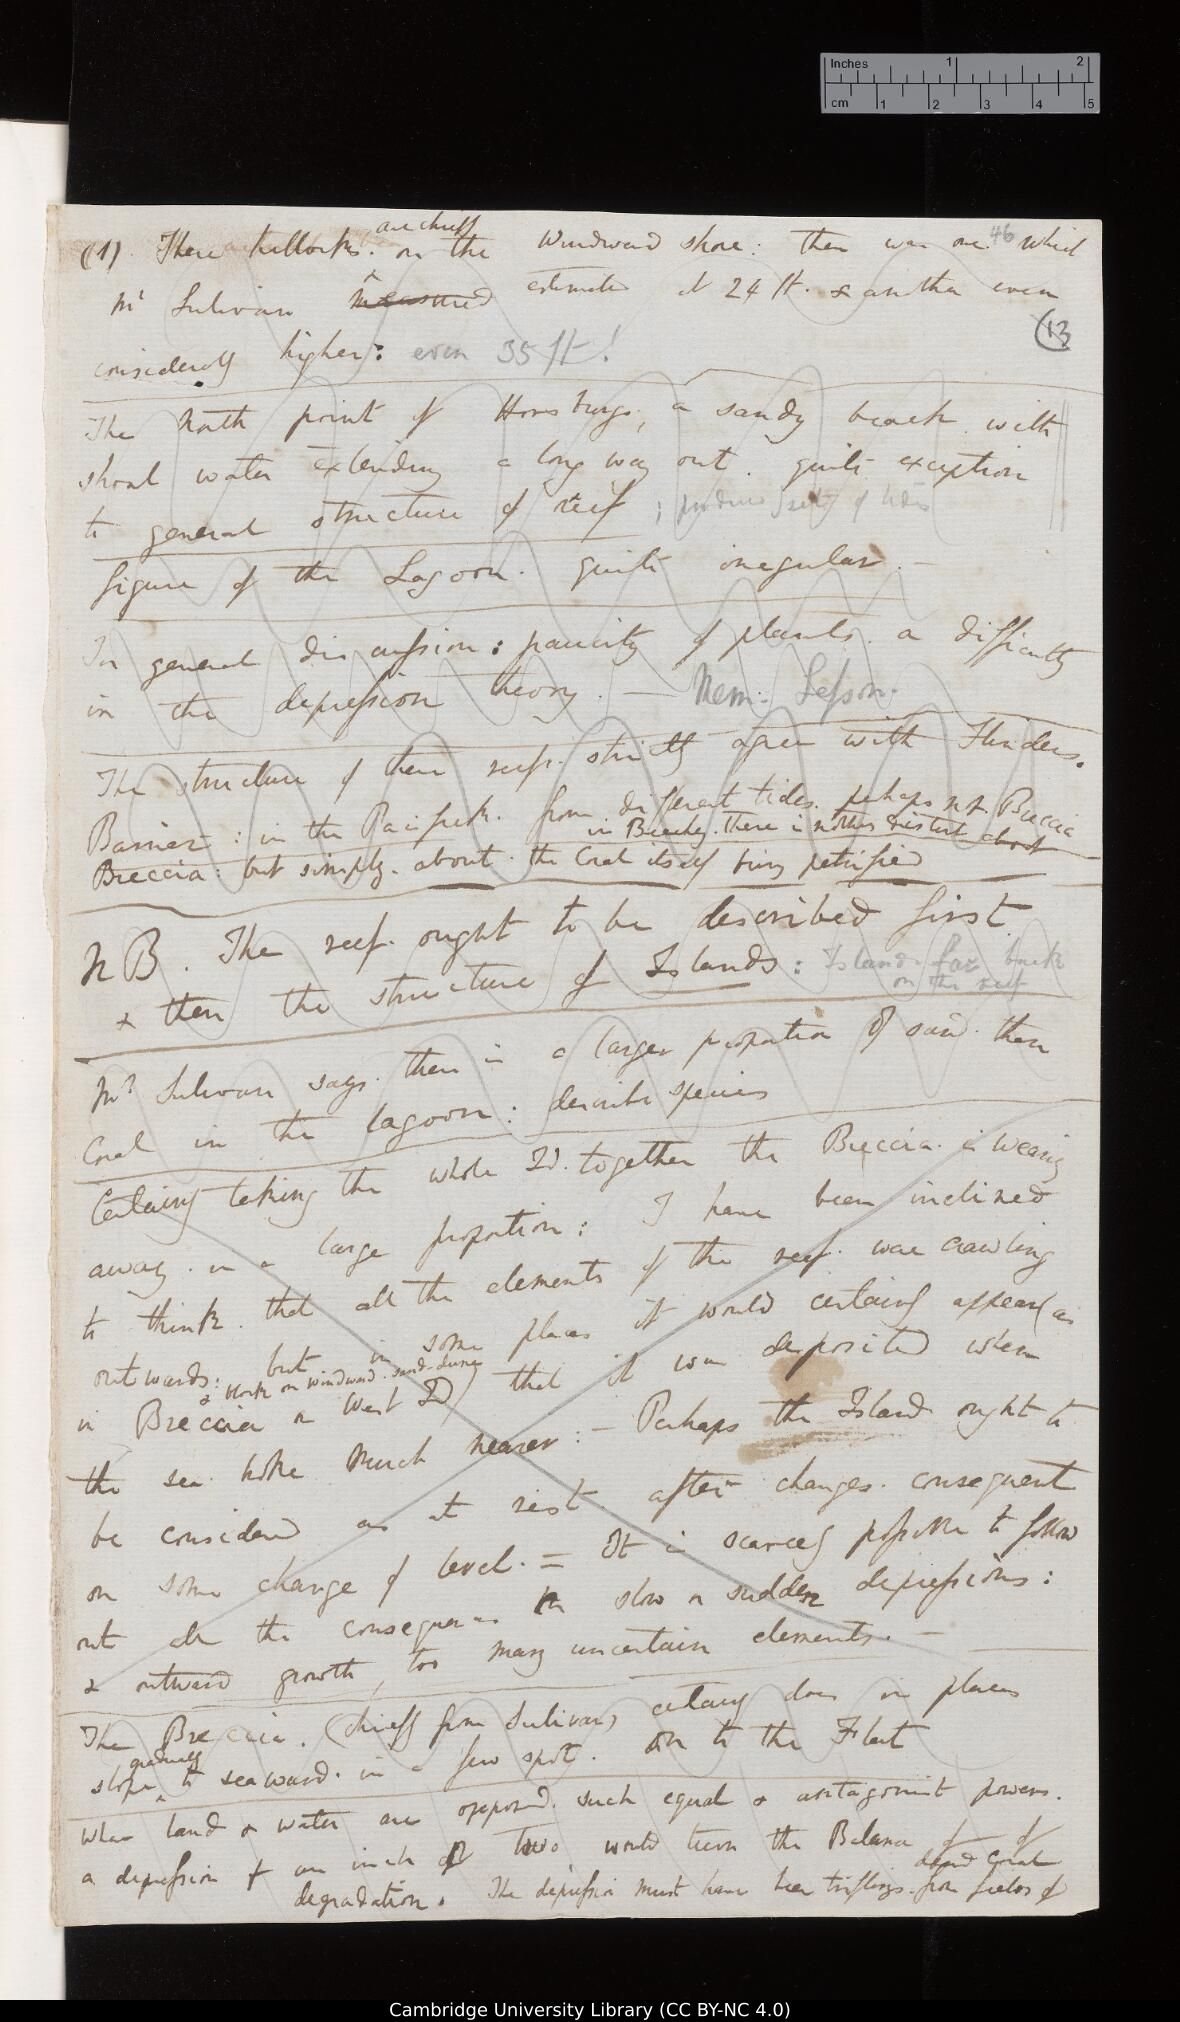 Inches 1 2
cm 1 2 3 4 5
46
(13
(1). These hillocks are chiefly on the Windward shore: there was one which
Mr Sulivan measured estimated at 24 ft. & another even
considerably higher: even 35 ft!
The North point of Horsburgh, a sandy beach with
shoal water extending a long way out. quite exception
to general structure of reef;
figure of the Lagoon. quite irregular. —
In general discussion: paucity of plants. a difficulty
in the depression theory. — Mem: Lesson.
The structure of these reefs. strictly agree with Flinders.
Barrier: in the Pacifick. from different tides. perhaps not Breccia
in Beechey. there is nothing distinct about
Breccia: but simply. about the Coral itself being petrified
NB. The reef. ought to be described first.
& then the structure of Islands: Islands far back
on the reef
Mr Sulivan says. there is a larger proportion of sand than
Coral in the lagoon: describe species
Certainly taking the whole Id. together the Breccia is wearing
away. in a large proportion: I have been inclined
to think that all the elements of the reef. were crawling
outwards: but in some places it would certainly appear (as
in Breccia & block on windward. sand-dune on West Id) that it was deposited when
the sea broke much nearer: — Perhaps the Island ought to
be considered as at rest. after changes. consequent
on some change of level. = It is scarcely possible to follow
out all the consequences in slow or sudden depressions:
& outward growth, too many uncertain elements. —
The Breccia. (chiefly from Sulivan) certainly does in places
slope gradually to seaward. in a few spots. on to the Flat
When land & water are opposed. such equal & antagonist powers.
a depression of an inch or two would turn the Balance of
degradation. The depression must have been trifling. from fields of
dead Coral
Cambridge University Library (CC BY-NC 4.0)